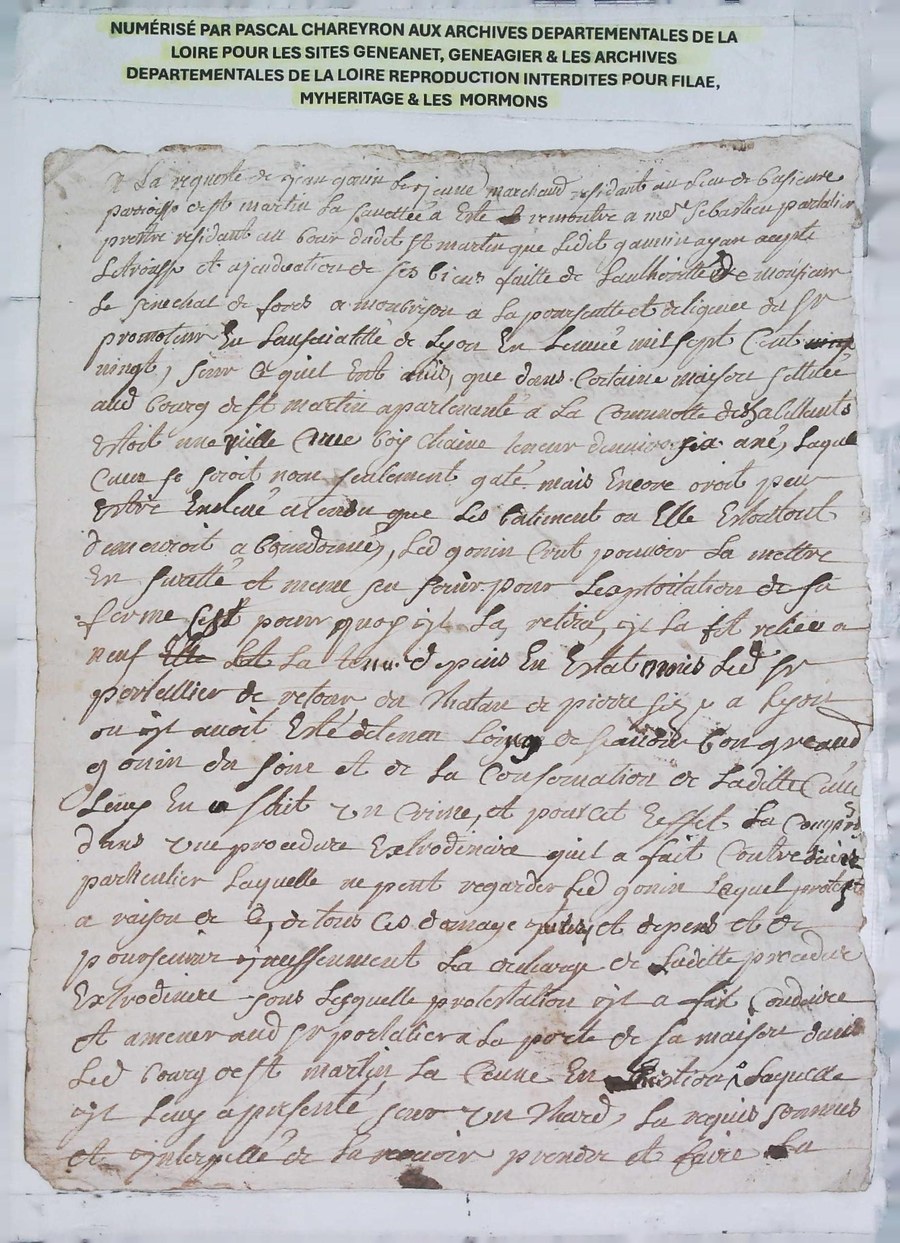 NUMÉRISÉ PAR PASCAL CHAREYRON AUX ARCHIVES DEPARTEMENTALES DE LA
LOIRE POUR LES SITES GENEANET, GENEAGIER & LES ARCHIVES
DEPARTEMENTALES DE LA LOIRE REPRODUCTION INTERDITES POUR FILAE,
MYHERITAGE & LES MORMONS
A La requeste de jean gonin le jeune marchand residant au lieu de
paroisse de st martin La Sauvetté a Esté remontre a me Sebastien portalier
prettre residant au bour dudit st martin que Ledit gonnin ayan
et ajeudication de ses biens faitte de Lauthoritté de monsieur
Le senechal de forés a monbrison a La poursuitte et deligence du sr
promoteur En de Lyon En Lennée mil sept Cent
vingt, sur Ce quil Eut avis, que dans Certaine maison scittuée
aud bourg de st martin apartenante a La Comunotte des habittants
Estoit une vielle Cuve bois chaine teneur denviron six ané, Laquel
Cuve se seroit non seulement gaté mais Encore oroit peu
Estre Enlevé atendu que Les batiment ou Elle Estoit tout
demouroit a bandonnés, Led gonin Crut pouvoir La mettre
En suretté et meme sen servir pour Lexploitation de sa
ferme Cest pour quoy il La retira, il La fit relier a
neuf La tenue depuis En Estat mais Led sr
portallier de retour du Chatau de pierre size a Lyon
ou il avoit Esté detenu Loing de scavoir bon gre aud
gonin du soin et de La Conservation de Laditte Cuve
Luy En fait un Crime, et pour cet Effet La Compris
dans une procedure Extrodinaire quil a fait Contre
particulier Laquelle ne peut regarder Led gonin Lequel proteste
a raison de Ce, de tous ces domage et depens et de
poursuivre La decharge de Laditte procedure
Extrodinere sous Lesquelle protestation il a fait Conduire
et amener aud sr portalier a La porte de sa maison dans
Led bourg de st martin La Cuve En question Laquelle
il Luy a presenté sur un Chard, La requis sommé
et interpellé de La recevoir prendre et faire La